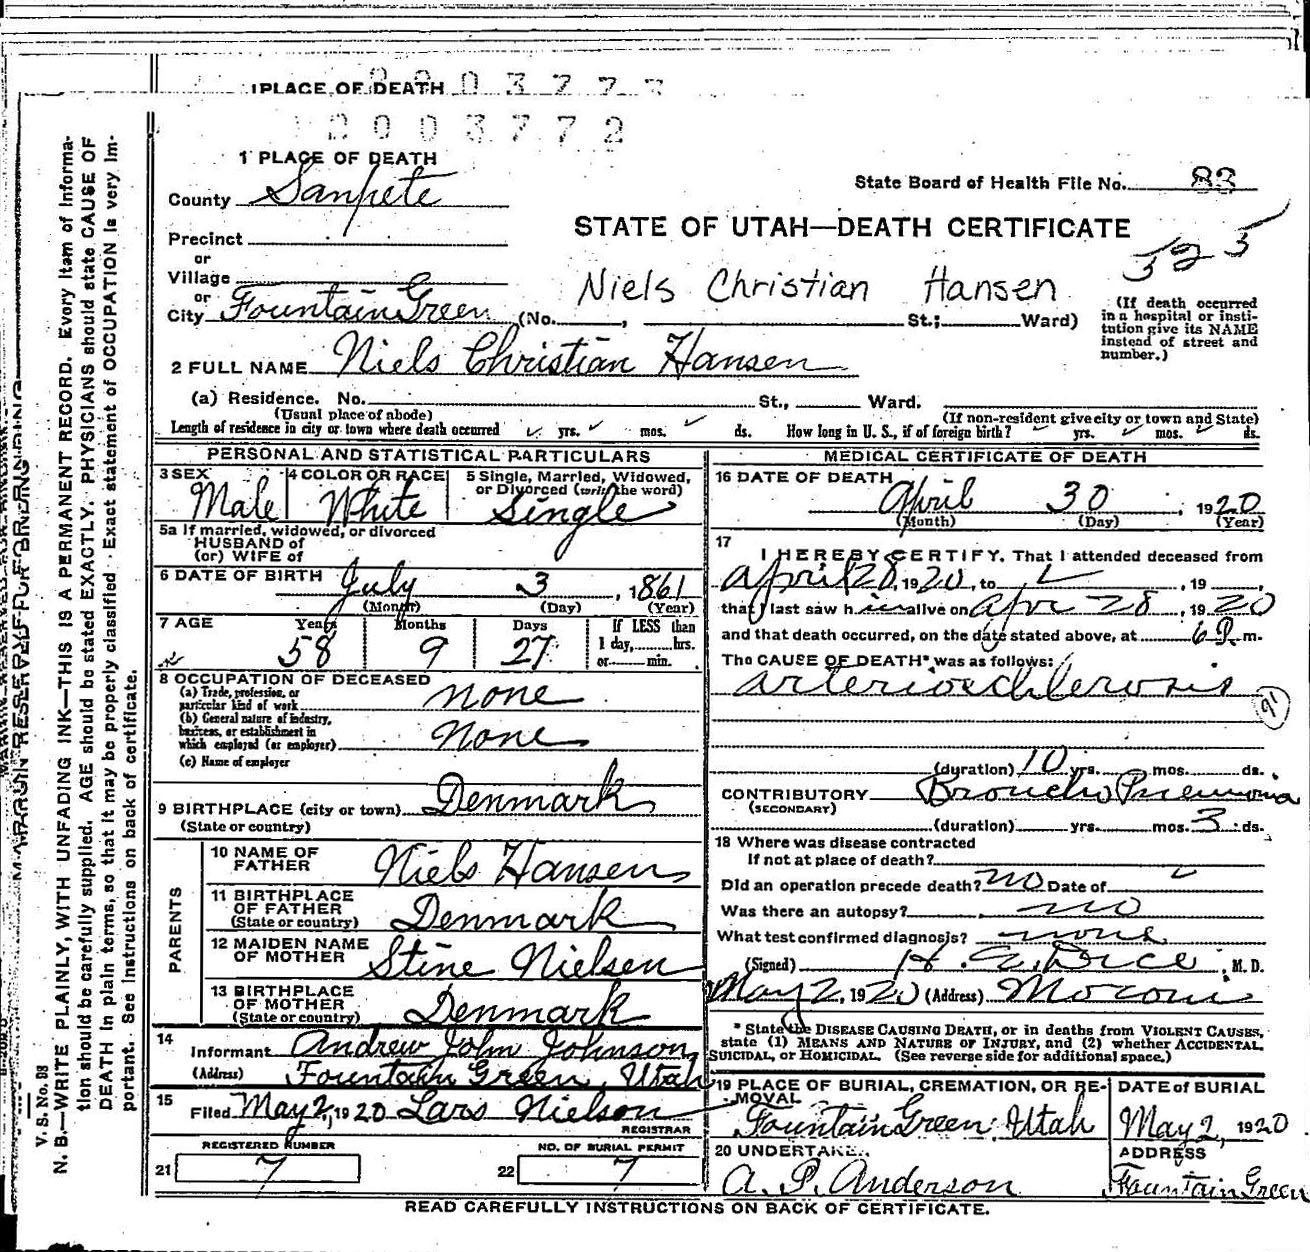 1 PLACE OF DEATH 0 0 0 3 7 7
2 0 0 3 7 7 2
1 PLACE OF DEATH
County Sanpete
State Board of Health File No. 83
STATE OF UTAH—DEATH CERTIFICATE
325
Precinct
or
Village
or
City Fountain Green (No. , St.; Ward)
Niels Christian Hansen
(If death occurred
in a hospital or insti-
tution give its NAME
instead of street and
number.)
2 FULL NAME Niels Christian Hansen
(a) Residence. No. St., Ward.
(Usual place of abode) (If non-resident give city or town and State)
Length of residence in city or town where death occurred yrs. mos. ds. How long in U. S., if of foreign birth? yrs. mos. ds.
PERSONAL AND STATISTICAL PARTICULARS
3 SEX Male
4 COLOR OR RACE White
5 Single, Married, Widowed,
or Divorced (write the word)
Single
5a If married, widowed, or divorced
HUSBAND of
(or) WIFE of
6 DATE OF BIRTH July 3, 1861
(Month) (Day) (Year)
7 AGE Years Months Days If LESS than
58 9 27 1 day, hrs.
or min.
8 OCCUPATION OF DECEASED
(a) Trade, profession, or
particular kind of work none
(b) General nature of industry,
business, or establishment in
which employed (or employer) None
(c) Name of employer
9 BIRTHPLACE (city or town) Denmark
(State or country)
PARENTS
10 NAME OF
FATHER Niels Hansen
11 BIRTHPLACE
OF FATHER
(State or country) Denmark
12 MAIDEN NAME
OF MOTHER Stine Nielsen
13 BIRTHPLACE
OF MOTHER
(State or country) Denmark
14
Informant Andrew John Johnson
(Address) Fountain Green, Utah
15
Filed May 2, 1920 Lars Nielson
REGISTRAR
REGISTERED NUMBER
21 7
NO. OF BURIAL PERMIT
22 7
MEDICAL CERTIFICATE OF DEATH
16 DATE OF DEATH
April 30, 1920
(Month) (Day) (Year)
17
I HEREBY CERTIFY, That I attended deceased from
April 28, 1920, to , 19 ,
that I last saw him alive on Apr 28, 1920
and that death occurred, on the date stated above, at 6 P. m.
The CAUSE OF DEATH* was as follows:
arterioschlerosis
91
(duration) 10 yrs. mos. ds.
CONTRIBUTORY Broncho Pneumonia
(SECONDARY)
(duration) yrs. mos. 3 ds.
18 Where was disease contracted
If not at place of death?
Did an operation precede death? no Date of
Was there an autopsy? no
What test confirmed diagnosis? none
(Signed) , M. D.
May 2, 1920 (Address) Moroni
* State the DISEASE CAUSING DEATH, or in deaths from VIOLENT CAUSES,
state (1) MEANS AND NATURE OF INJURY, and (2) whether ACCIDENTAL,
SUICIDAL, or HOMICIDAL. (See reverse side for additional space.)
19 PLACE OF BURIAL, CREMATION, OR RE-
MOVAL
Fountain Green, Utah
DATE of BURIAL
May 2, 1920
20 UNDERTAKER
A. P. Anderson
ADDRESS
Fountain Green
READ CAREFULLY INSTRUCTIONS ON BACK OF CERTIFICATE.
MARGIN RESERVED FOR BINDING
V. S. No. 98
N. B.—WRITE PLAINLY, WITH UNFADING INK—THIS IS A PERMANENT RECORD. Every item of informa-
tion should be carefully supplied. AGE should be stated EXACTLY. PHYSICIANS should state CAUSE OF
DEATH in plain terms, so that it may be properly classified. Exact statement of OCCUPATION is very im-
portant. See instructions on back of certificate.